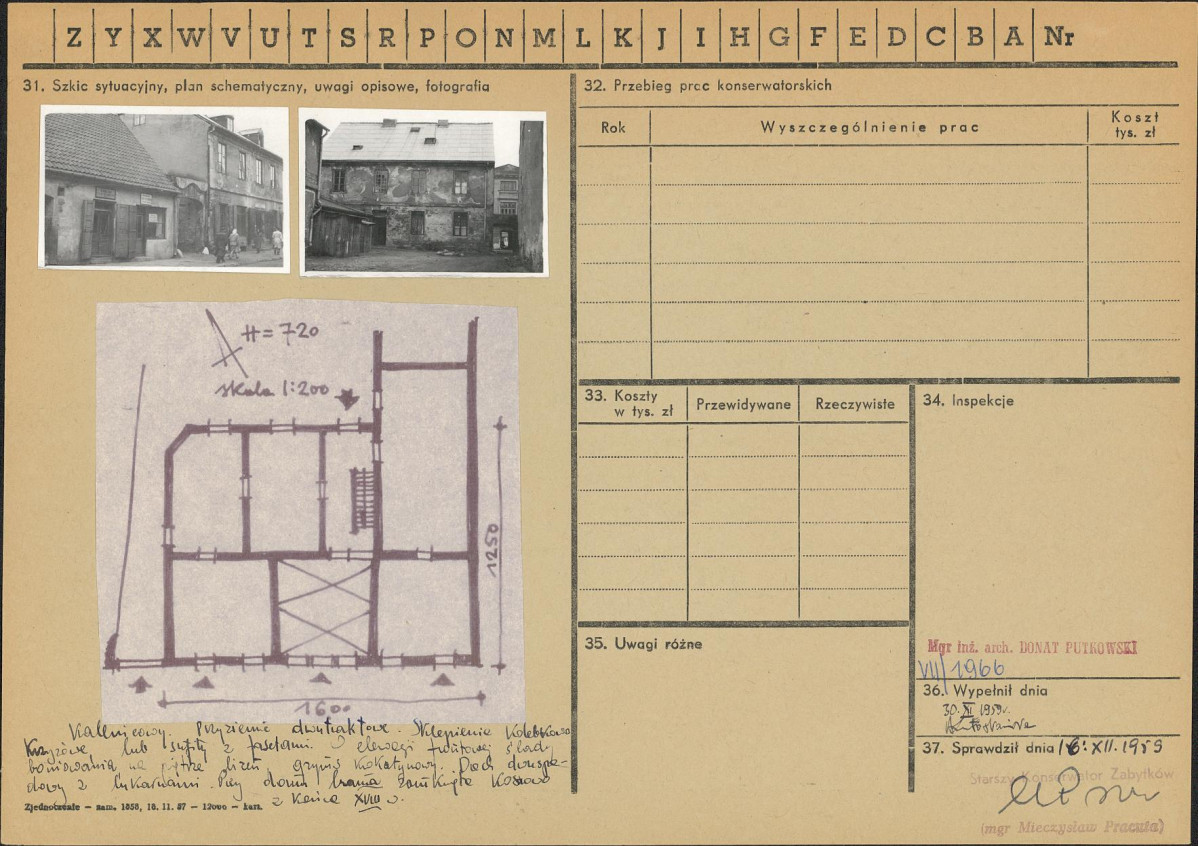 Z Y X W V U T S R P O N M L K J I H G F E D C B A Nr
31. Szkic sytuacyjny, plan schematyczny, uwagi opisowe, fotografia
H = 720
skala 1:200
1250
1600
Kalenicowy. Przyziemie dwutraktowe. Sklepienie kolebkowo
Krzyżowe lub sufity z fasetami. elewacji frontowej ślady
boniowania na piętrze gzyms Dach dwuspa-
dowy z lukarnami. Przy domu brama zamknięta koszowo
z końca XVIII w.
Zjednoczenie – zam. 1858, 18. 11. 57 – 12000 – kart.
32. Przebieg prac konserwatorskich
Rok
Wyszczególnienie prac
Koszt
tys. zł
33. Koszty
w tys. zł
Przewidywane
Rzeczywiste
34. Inspekcje
Mgr inż. arch. DONAT PUTKOWSKI
VII/1966
35. Uwagi różne
36. Wypełnił dnia
30. XI 1959r.
37. Sprawdził dnia 16. XII. 1959
Starszy Konserwator Zabytków
(mgr Mieczysław Pracuta)